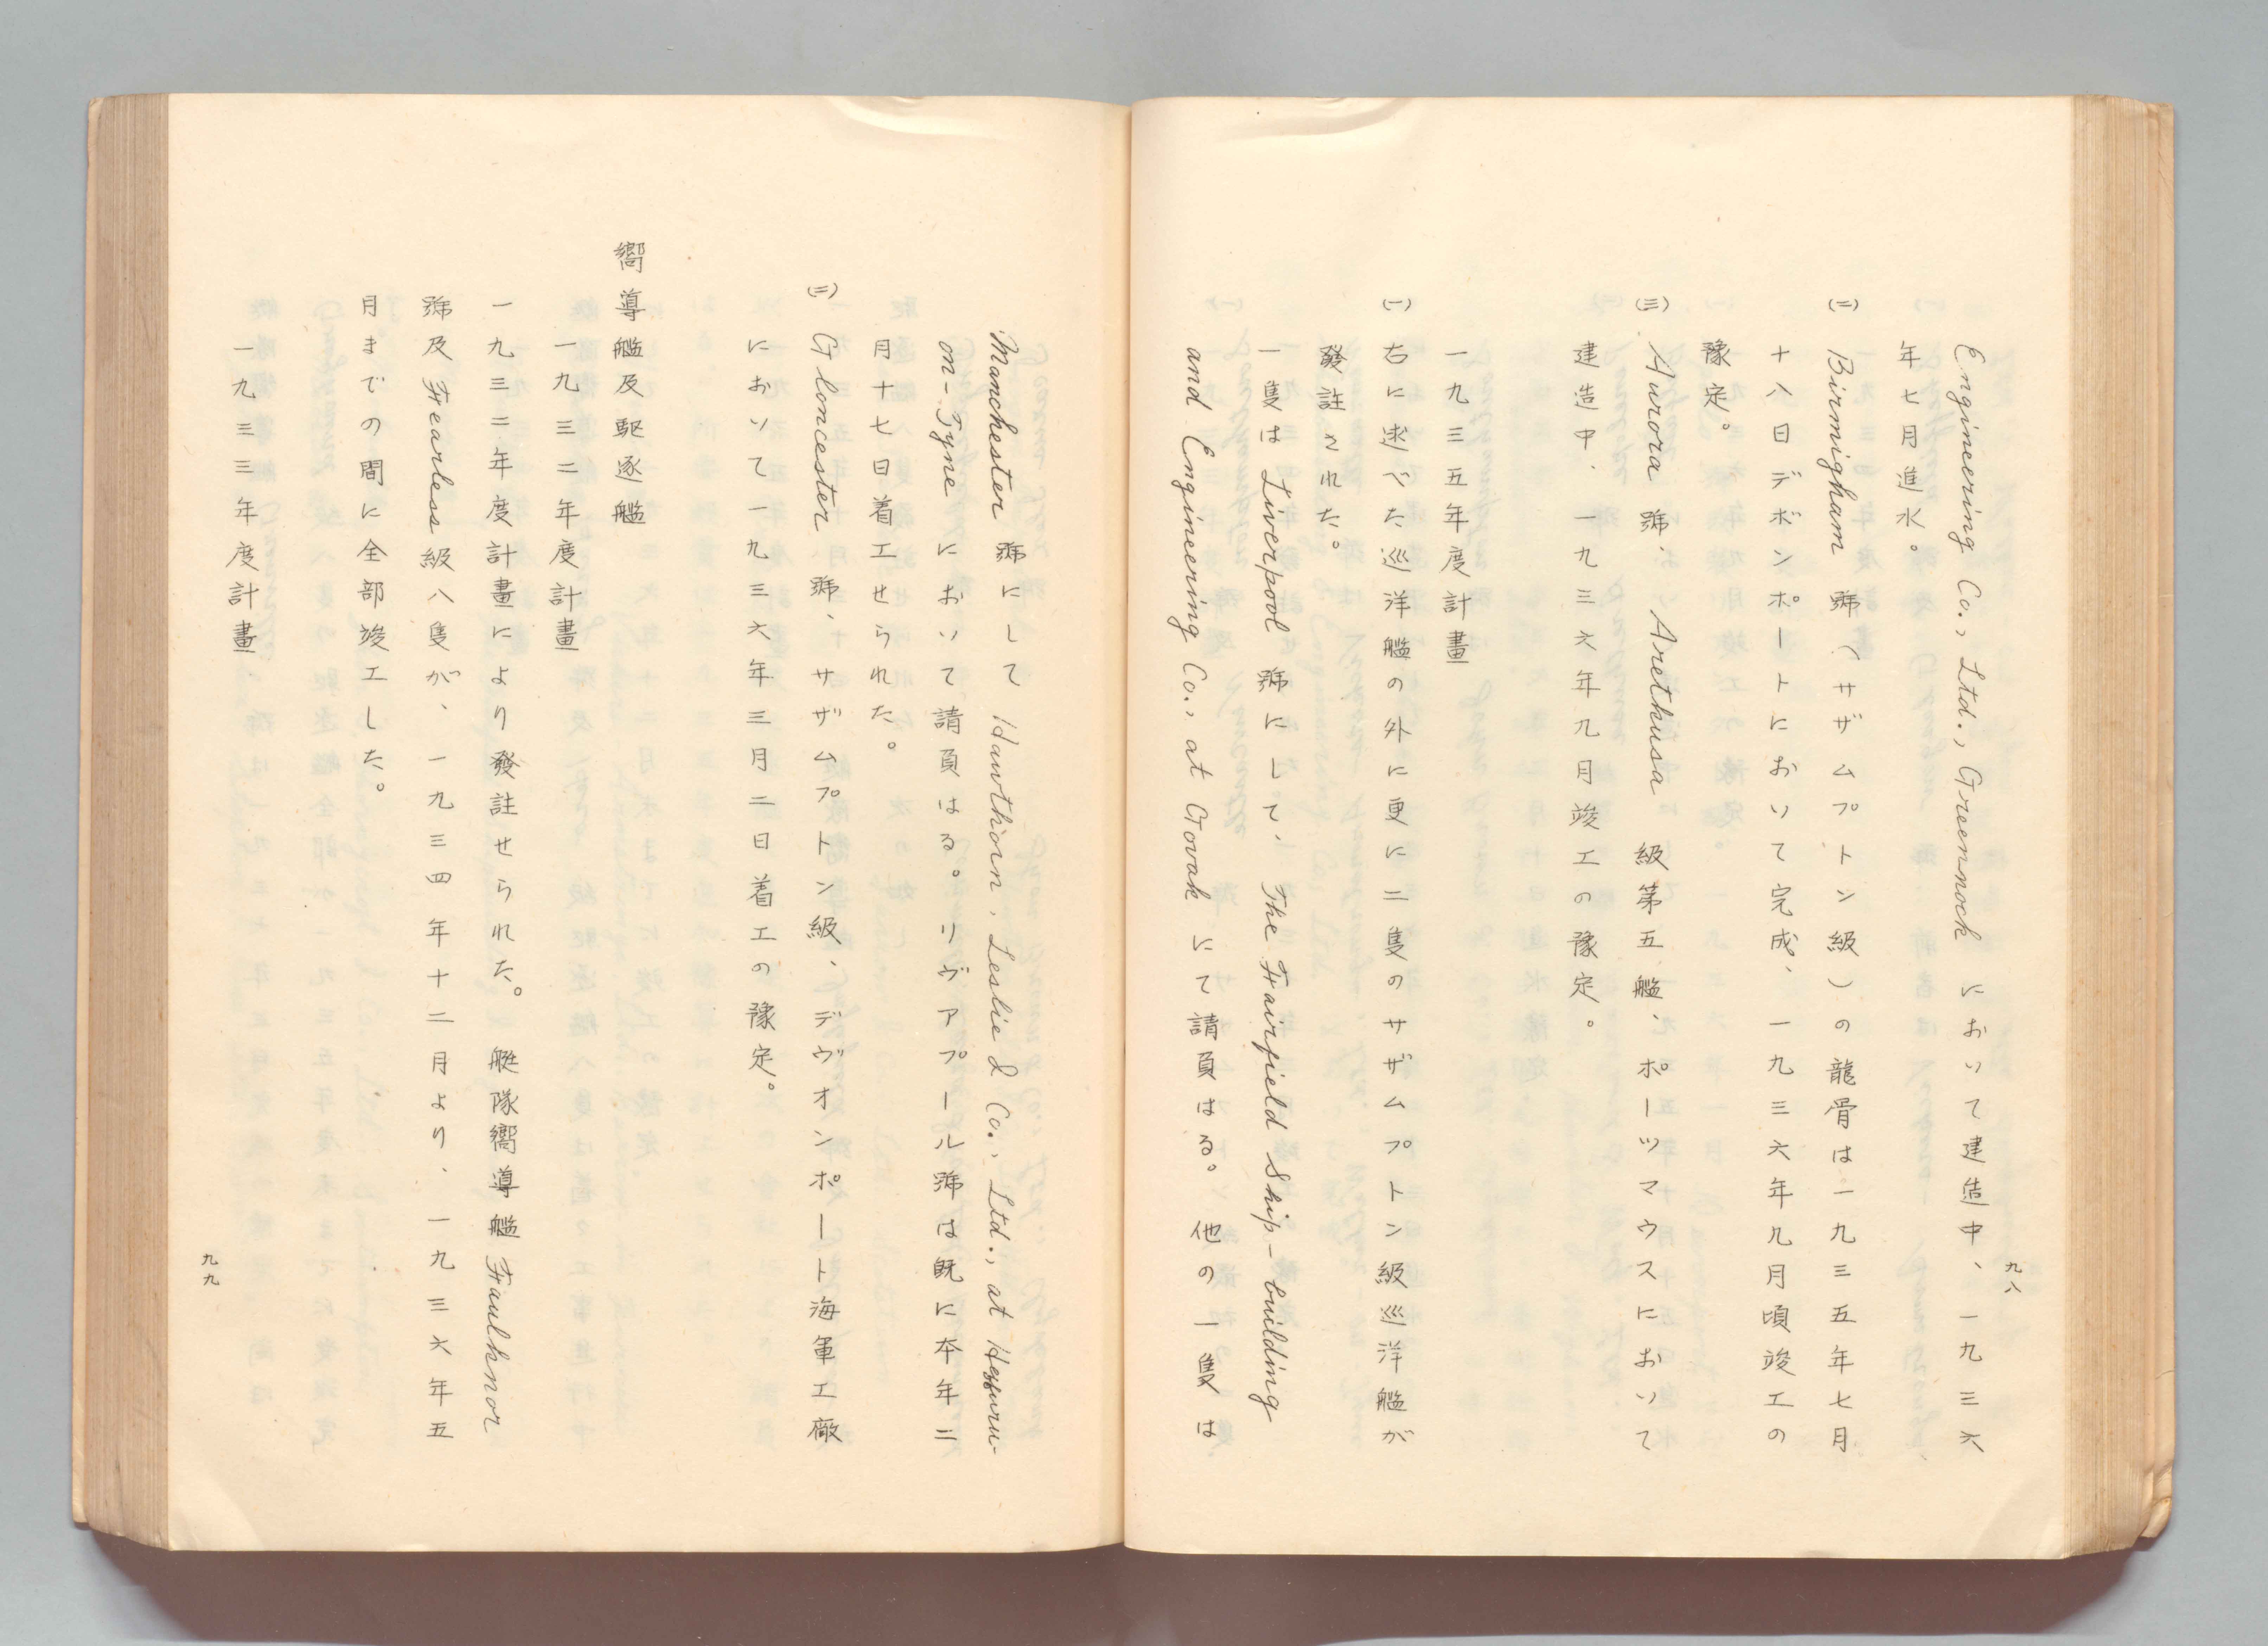 九八
Engineering Co., Ltd., Greennock において建造中、一九三六
年七月進水。
(二) Birmigham 號(サザムプトン級)の龍骨は一九三五年七月
十八日デボンポートにおいて完成、一九三六年九月頃竣工の
豫定。
(三) Aurora 號、Arethusa 級第五艦、ポーツマウスにおいて
建造中、一九三六年九月竣工の豫定。
一九三五年度計畫
(一) 右に述べた巡洋艦の外に更に二隻のサザムプトン級巡洋艦が
發註された。
一隻は Liverpool 號にして、The Fairfield Ship-building
and Engineering Co., at Govak にて請負はる。他の一隻は
Manchester 號にして Hawthorn, Leslie & Co., Ltd., at
on-Tyne において請負はる。リヴアプール號は既に本年二
月十七日着工せられた。
(三) Gloncester 號、サザムプトン級、デヴオンポート海軍工廠
において一九三六年三月二日着工の豫定。
嚮導艦及駆逐艦
一九三二年度計畫
一九三二年度計畫により發註せられた。艇隊嚮導艦 Faulknor
號及 Fearless 級八隻が、一九三四年十二月より、一九三六年五
月までの間に全部竣工した。
一九三三年度計畫
九九